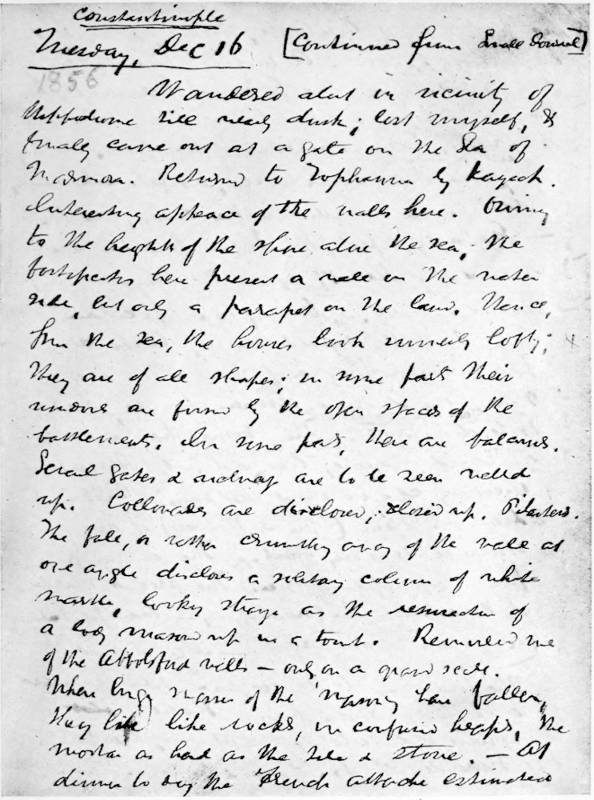 Constantinople
Tuesday, Dec 16 [Continued from Small Journal]
1856
Wandered about in vicinity of
Hippodrome till nearly dusk; lost myself, &
finally came out at a gate on the Sea of
Marmora. Returned to Tophanna by kayack.
Interesting appeance of the walls here. Owing
to the heighth of the shore above the sea, the
fortifications here present a wall on the water
side, but only a parapet on the land. Hence,
from the sea, the houses look lofty;
they are of all shapes; in some parts their
windows are formed by the open spaces of the
battlements. In some parts, there are balconies.
Several gates & archways are to be seen walled
up. Collonades are disclosed, closed up. Pilasters.
The fall, or rather crumbling away of the wall at
one angle discloses a solitary column of white
marble, looking strange as the resurrection of
a body masoned up in a tomb. Reminded me
of the Abbotsford walls — only on a grand scale.
Where large masses of the masonry have fallen,
they lie like rocks, in confused heaps, the
mortar as hard as the tile & stone. — At
dinner to day the French attache estimated